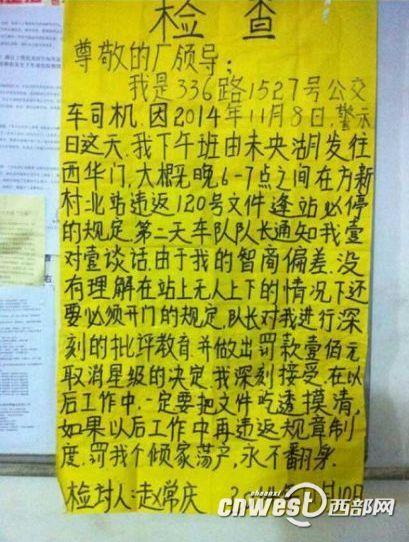 检查
尊敬的厂领导:
我是336路1527号公交
车司机,因2014年11月8日,警示
日这天,我下午班由未央湖发往
西华门,大概晚6-7点之间在方新
村北站违返120号文件逢站必停
的规定,第二天车队队长通知我壹
对壹谈话,由于我的智商偏差,没
有理解在站上无人上下的情况下还
要必须开门的规定,队长对我进行深
刻的批评教育,并做出罚款壹佰元
取消星级的决定,我深刻接受,在以
后工作中,一定要把文件吃透摸清,
如果以后工作中再违返规章制
度,罚我个倾家荡产,永不翻身.
检讨人:赵常庆 10日
cnwest西部网
shaanxi